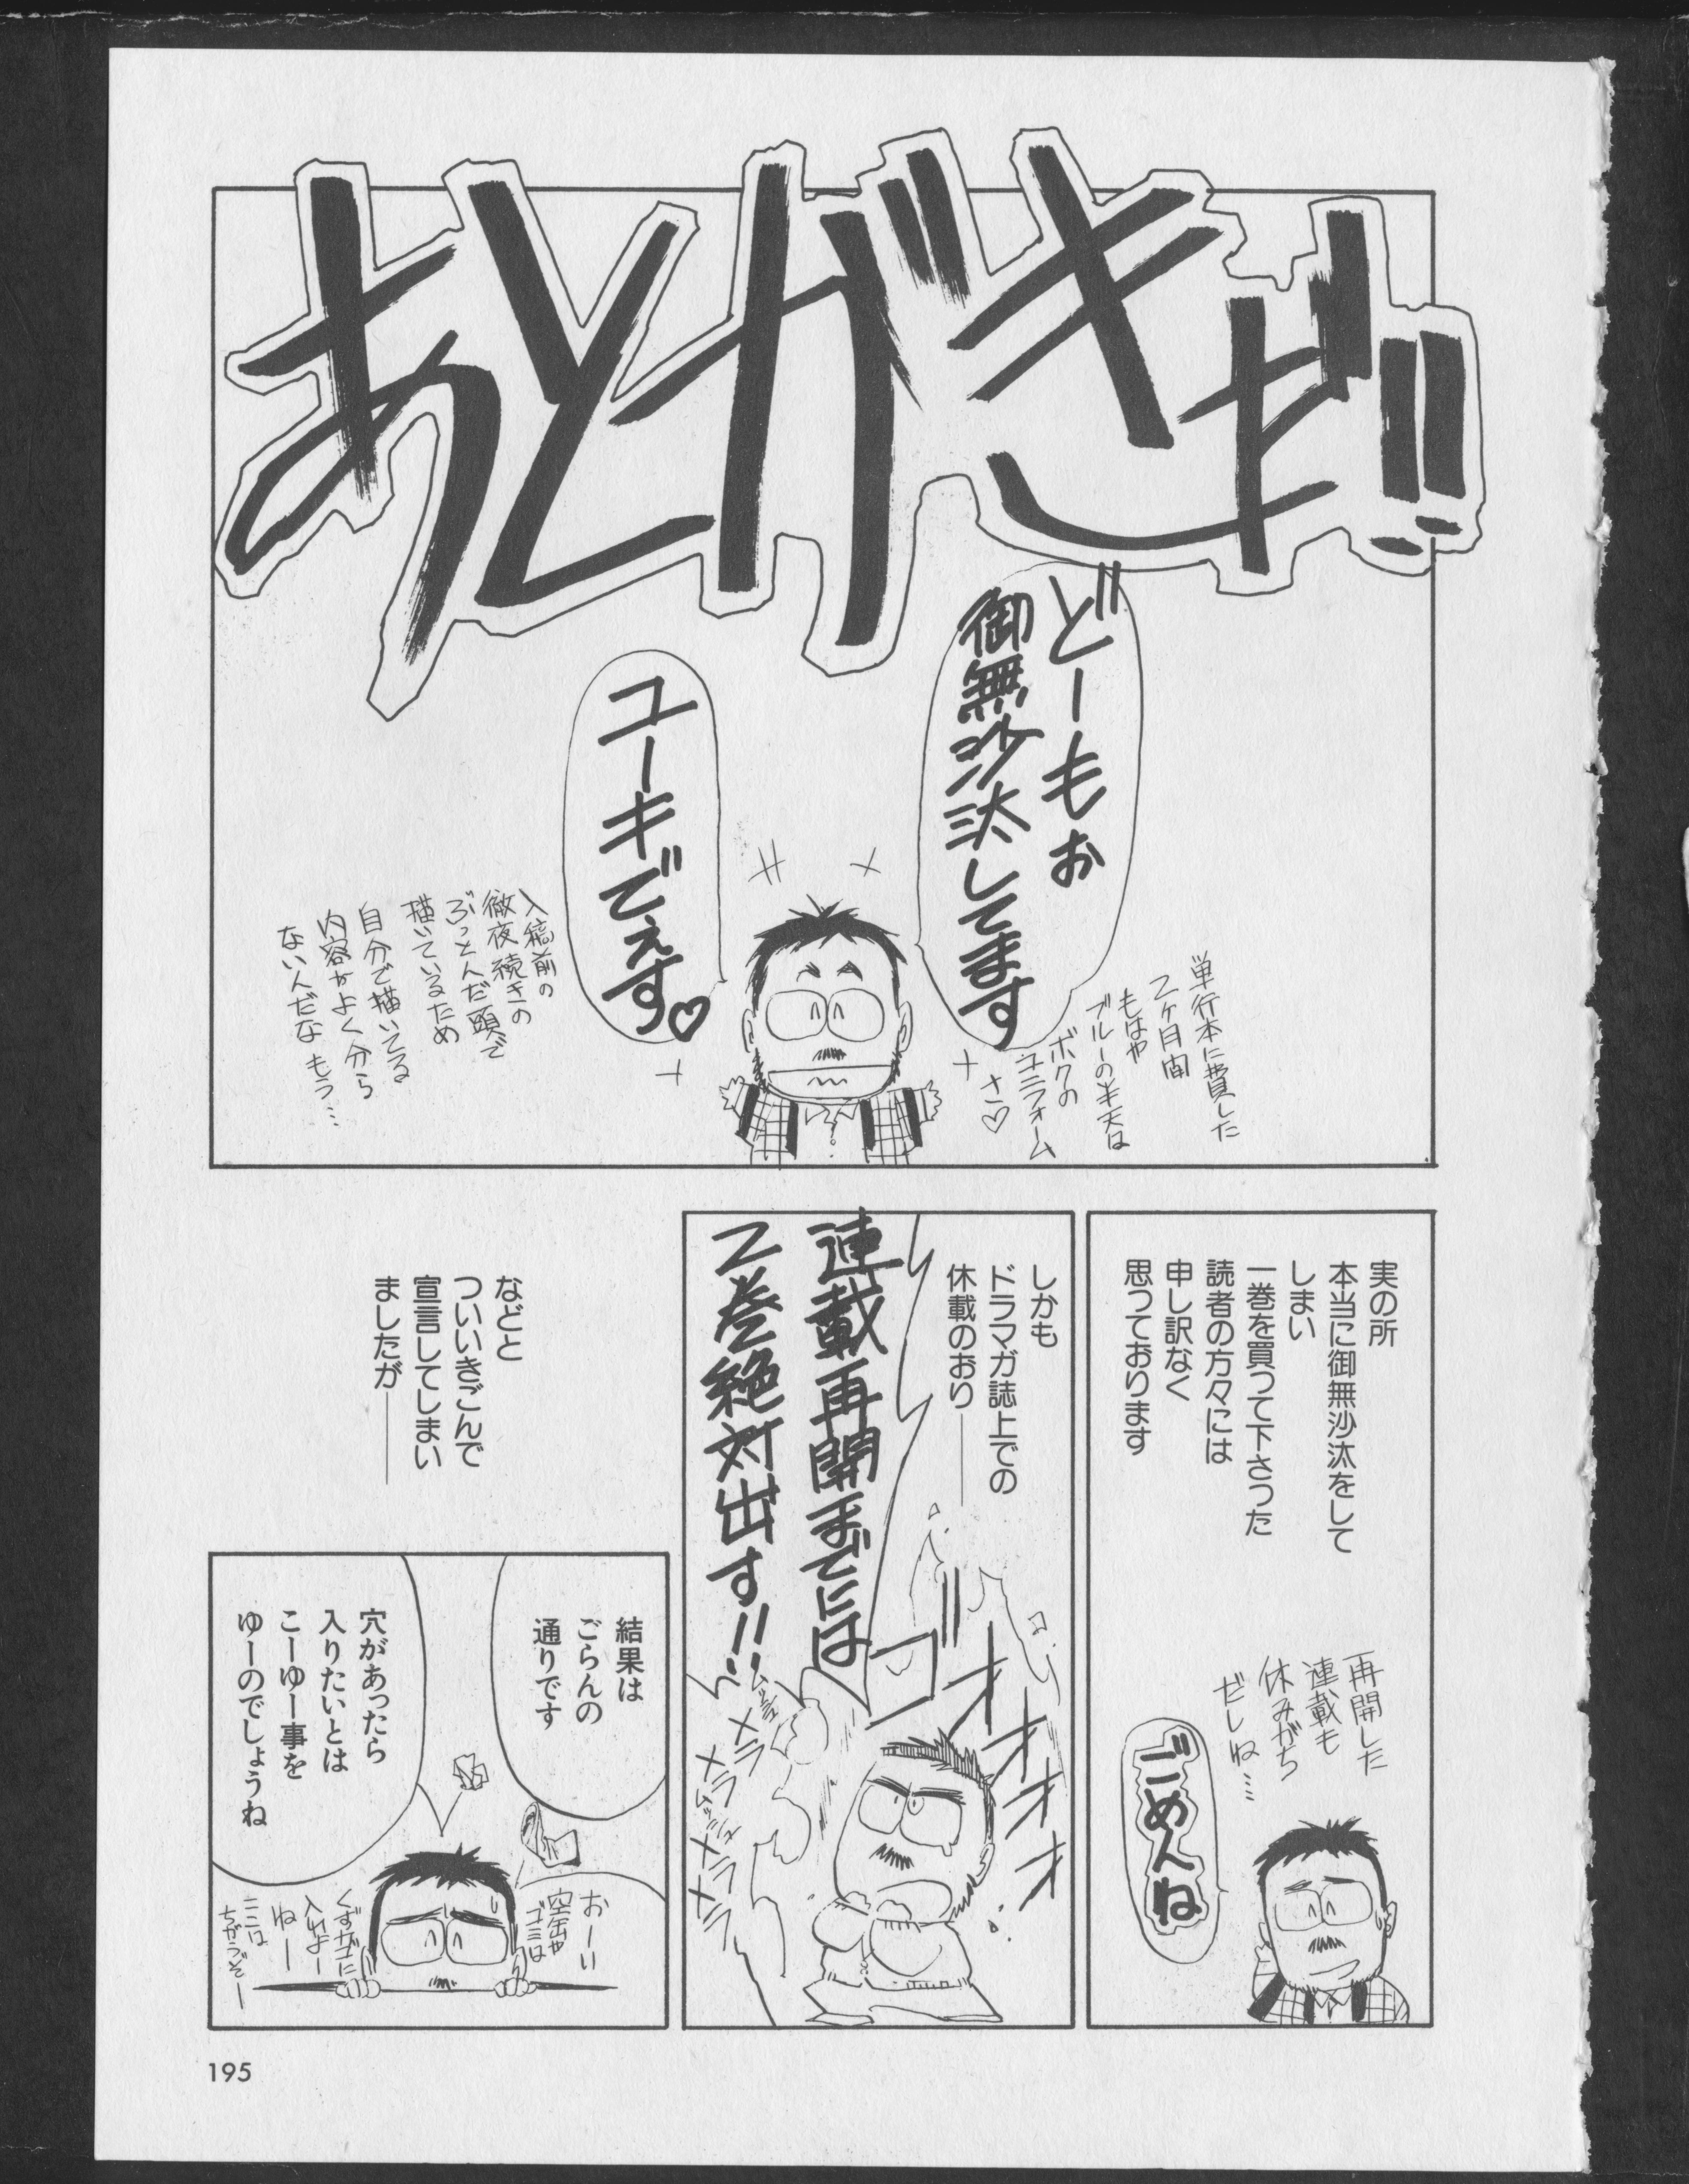 あとがきだ!!
どーもぉ
御無沙汰してます
ユーキでぇす♡
単行本に費した
2ヶ月間
もはや
ブルーの半天は
ボクの
ユニフォーム
さ♡
入稿前の
徹夜続きの
ぶっとんだ頭で
描いているため
自分で描いてる
内容がよく分から
ない人だな もう…
実の所
本当に御無沙汰をして
しまい
一巻を買って下さった
読者の方々には
申し訳なく
思っております
再開した
連載も
休みがち
だしね…
ごめんね
しかも
ドラマガ誌上での
休載のおり――
連載再開までには
2巻絶対出す!!
オオオオオ
メラ
メラ
メラ
メラ
などと
ついいきごんで
宣言してしまい
ましたが――
結果は
ごらんの
通りです
穴があったら
入りたいとは
こーゆー事を
ゆーのでしょうね
おーい
空缶や
ゴミは
くずカゴに
入れよー
ねー
ここは
ちがうぞー
195